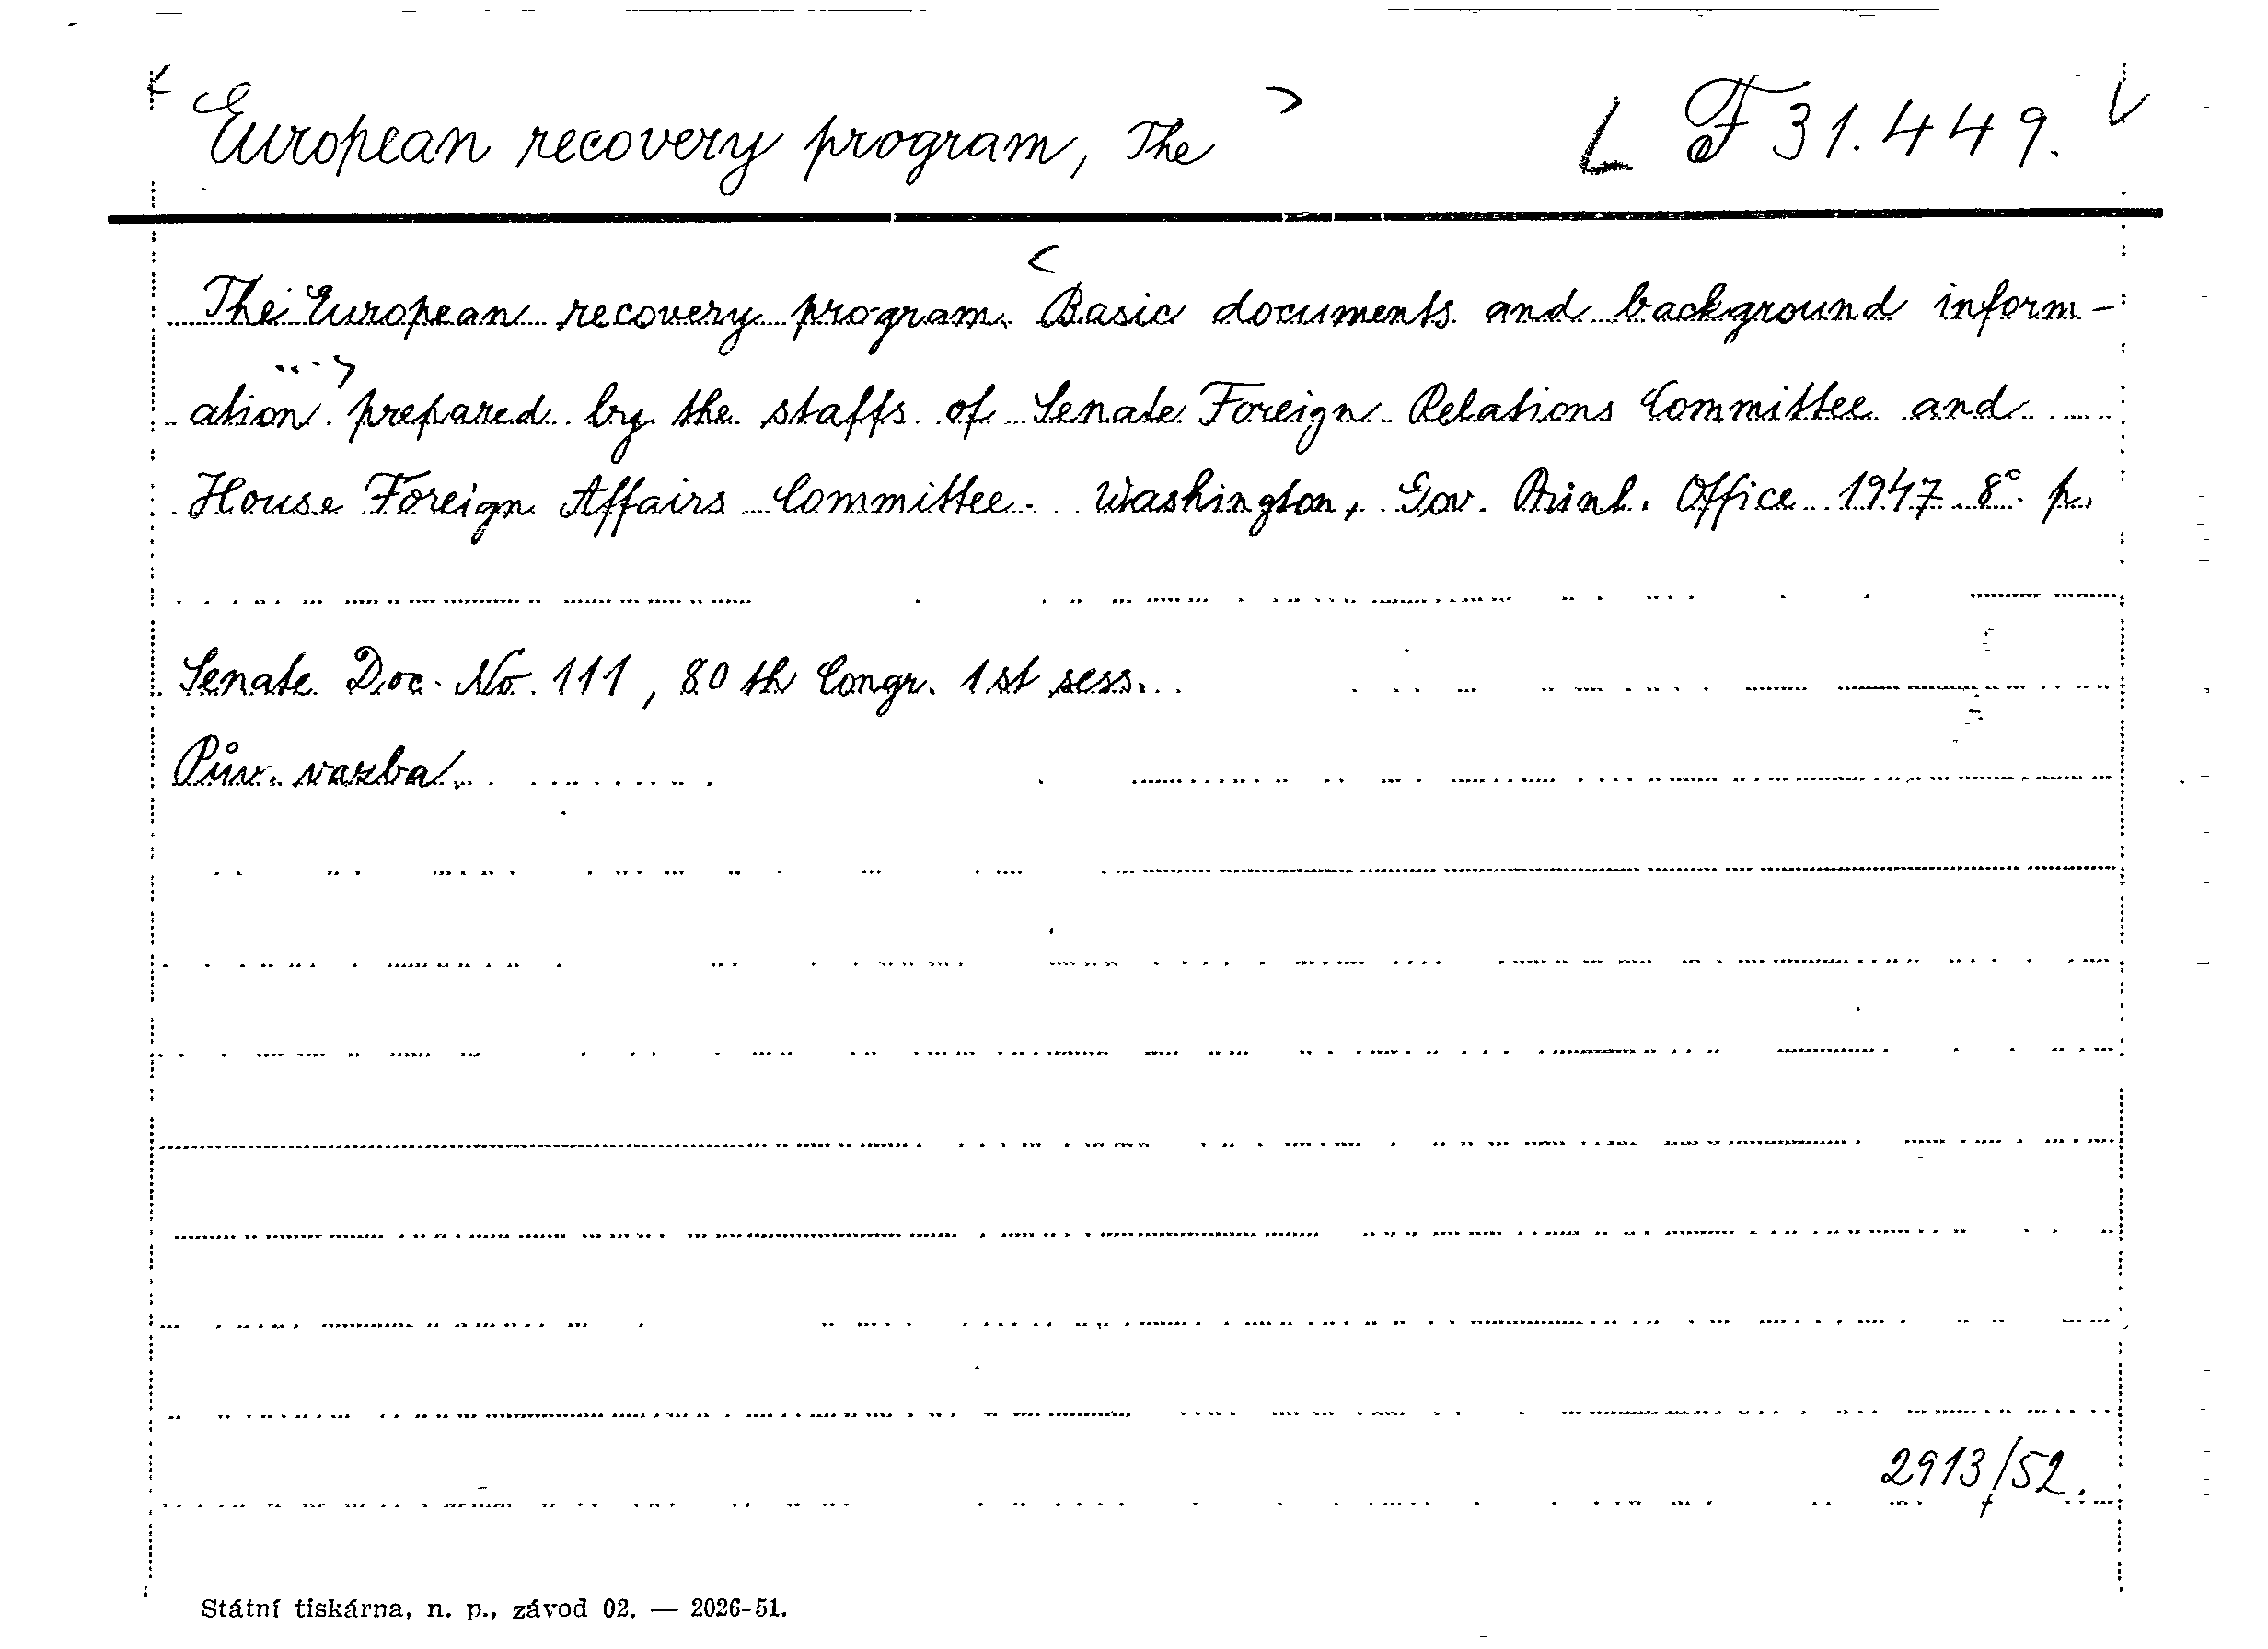 < European recovery program, The > L F 31.449. V
The European recovery program. < Basic documents and background inform-
ation ...> prepared by the staffs of Senate Foreign Relations Committee and
House Foreign Affairs Committee. Washington, Gov. Print. Office 1947. 8°. p.
Senate Doc. No. 111, 80 th Congr. 1 st sess.
Pův. vazba.
2913/52.
Státní tiskárna, n. p., závod 02. — 2026-51.